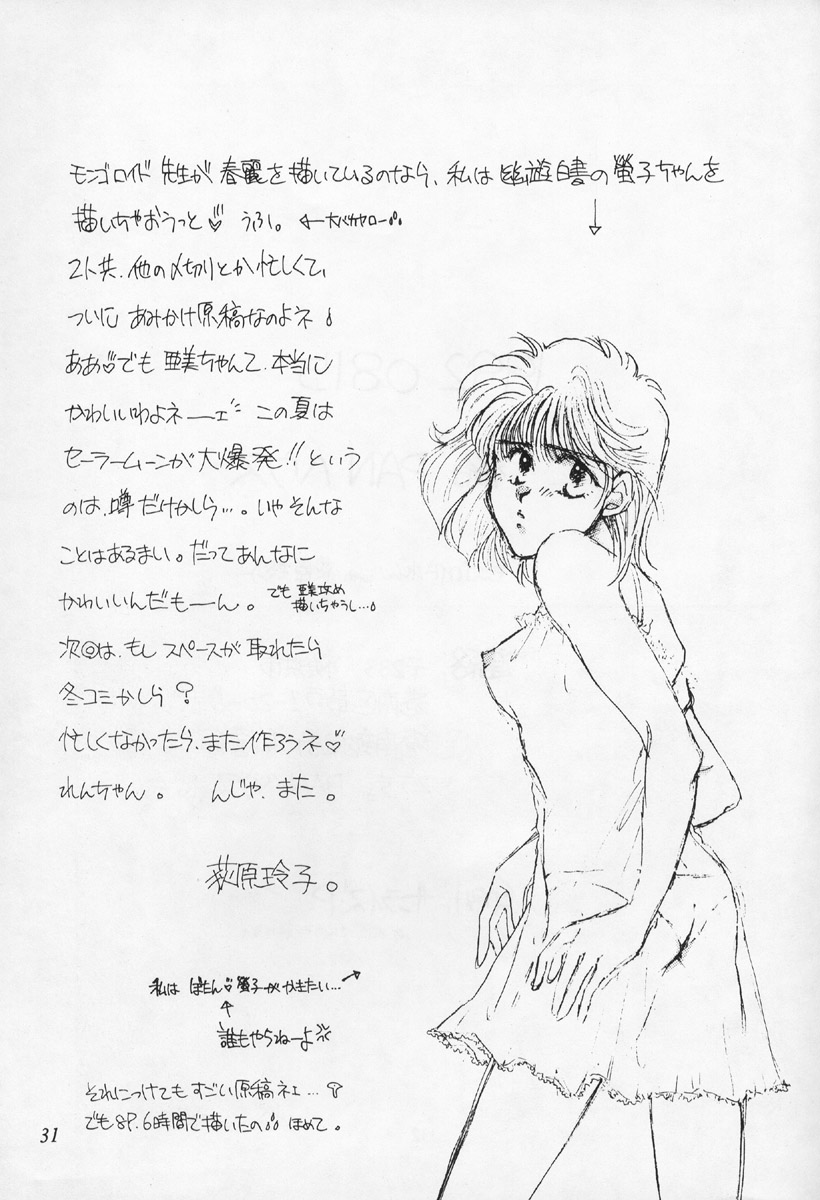 モンゴロイド先生が春麗を描いているのなら、私は幽遊白書の螢子ちゃんを
描いちゃおうっと♡ うふ。 ←大バカヤロー
2人共、他の〆切りとか忙しくて、
ついに あみかけ原稿なのよネ
ああ♡でも 亜美ちゃんて、本当に
かわいいわよネーェ この夏は
セーラームーンが大爆発!!という
のは、噂だけかしら…。いやそんな
ことはあるまい。だってあんなに
かわいいんだもーん。 でも 亜美攻め
描いちゃうし…。
次回は、もし スペースが取れたら
冬コミかしら?
忙しくなかったら、また作ろうネ♡
れんちゃん。 んじゃ、また。
荻原玲子。
私は ぼたん♡螢子がかきたい…→
↑
誰もやらねーよ
それにつけてもすごい原稿ネェ…
でも8P.6時間で描いたの ほめて。
31